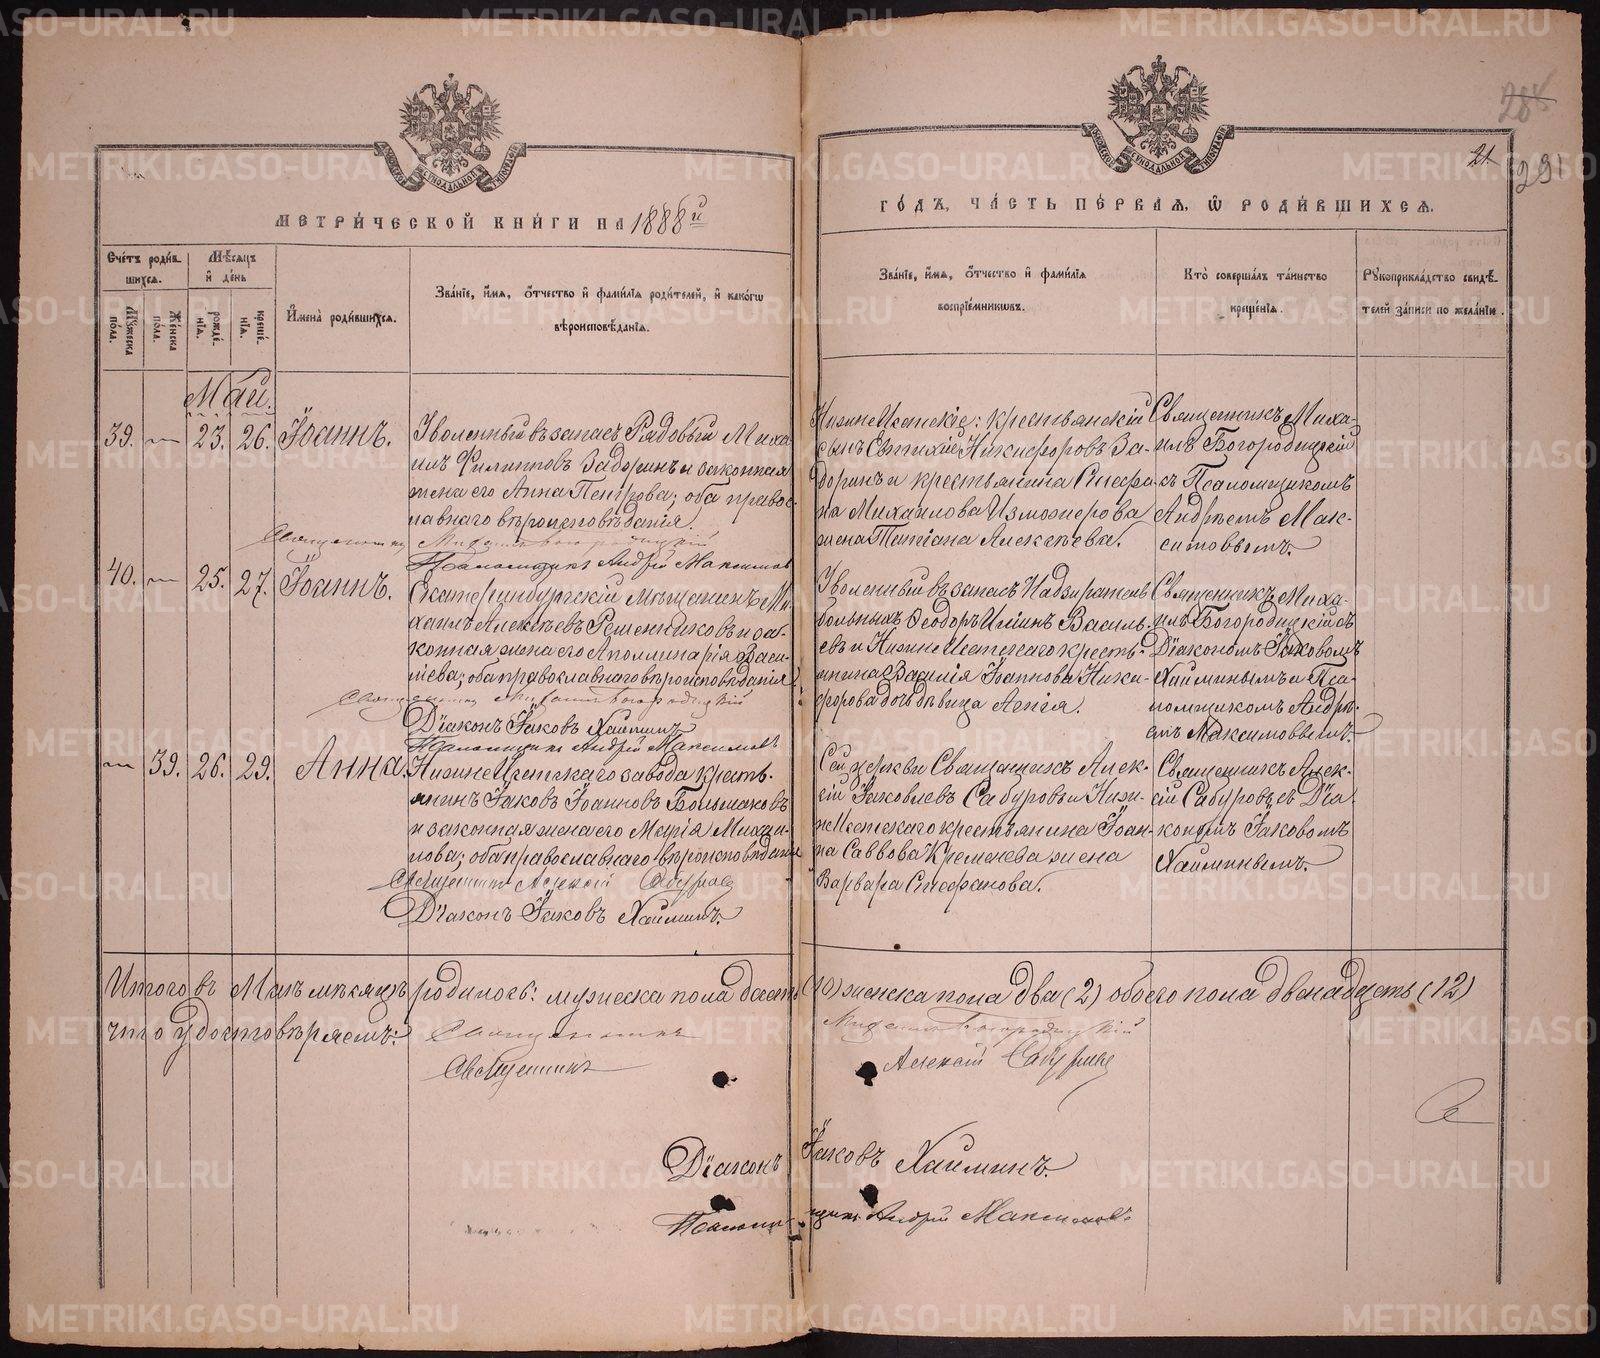 МЕТРИ́ЧЕСКОЙ КНИ́ГИ НА 1888й
ГО́ДЪ, ЧА́СТЬ ПЕ́РВАЯ, Ѡ РОДИ́ВШИХСЯ.
28
21.
29
Сче́тъ роди́в-
шихся.
Му́жеска по́ла.
Же́нска по́ла.
Мѣ́сяцъ и де́нь
рожде́-
нїя.
креще́-
нїя.
И҆мена̀ роди́вшихся.
Зва́нїе, и҆́мя, ѻ҆́тчество и҆ фами́лїя роди́телей, и҆ како́гѡ
вѣроисповѣ́данїя.
Зва́нїе, и҆́мя, ѻ҆́тчество и҆ фами́лїя
воспрїе́мниковъ.
Кто̀ соверша́лъ та́инство
креще́нїя.
Рꙋкоприкла́дство свидѣ́-
телей за́писи по жела́нїю.
Май.
39. 23. 26. Іоаннъ.
Уволенный въ запасъ Рядовый Миха-
илъ Филипповъ Задоринъ и законная
жена его Анна Петрова; оба правос-
лавнаго вѣроисповѣданія.
Священникъ Михаилъ Богородицкій
Псаломщикъ Андрей Максимовъ
крестьянскій
сынъ Евтихій Никифоровъ За-
доринъ и крестьянина Стефа-
на Михаилова Изможерова
жена Татіана Алексѣева.
Священникъ Миха-
илъ Богородицкій
съ Псаломщикомъ
Андреемъ Мак-
симовымъ.
40. 25. 27. Іоаннъ.
Екатеринбургскій мѣщанинъ Ми-
хаилъ Алексѣевъ Ременниковъ и за-
конная жена его Аполлинарія Васи-
лиева; оба православнаго вѣроисповѣданія
Священникъ Михаилъ Богородицкій
Діаконъ Іаковъ Хайминъ
Псаломщикъ Андрей Максимовъ
Уволенный въ запасъ Надзиратель
больныхъ Ѳеодоръ Илиинъ Василь-
евъ и Нижнеисетскаго кресть-
янина Василія Іоаннова Ники-
форова дочь дѣвица Агнія.
Священникъ Миха-
илъ Богородицкій съ
Діакономъ Іаковомъ
Хайминымъ и Пса-
ломщикомъ Андре-
емъ Максимовымъ.
39. 26. 29. Анна.
Нижнеисетскаго завода кресть-
янинъ Іаковъ Іоанновъ Большаковъ
и законная жена его Марія Михаи-
лова; оба православнаго вѣроисповѣданія
Священникъ Алексій Сабуровъ
Діаконъ Іаковъ Хайминъ.
Сей церкви Священникъ Алек-
сій Іаковлевъ Сабуровъ и Ниж-
неисетскаго крестьянина Іоан-
на Саввова Кременева жена
Варвара Стефанова.
Священникъ Алек-
сій Сабуровъ съ Діа-
кономъ Іаковомъ
Хайминымъ.
Итого въ Маѣ мѣсяцѣ родилось: мужеска пола десять (10) женска пола два (2) обоего пола двенадцать (12)
что удостовѣряемъ: Священникъ Михаилъ Богородицкій
Священникъ Алексій Сабуровъ
Діаконъ Іаковъ Хайминъ.
Псаломщикъ Андрей Максимовъ.
METRIKI.GASO-URAL.RU